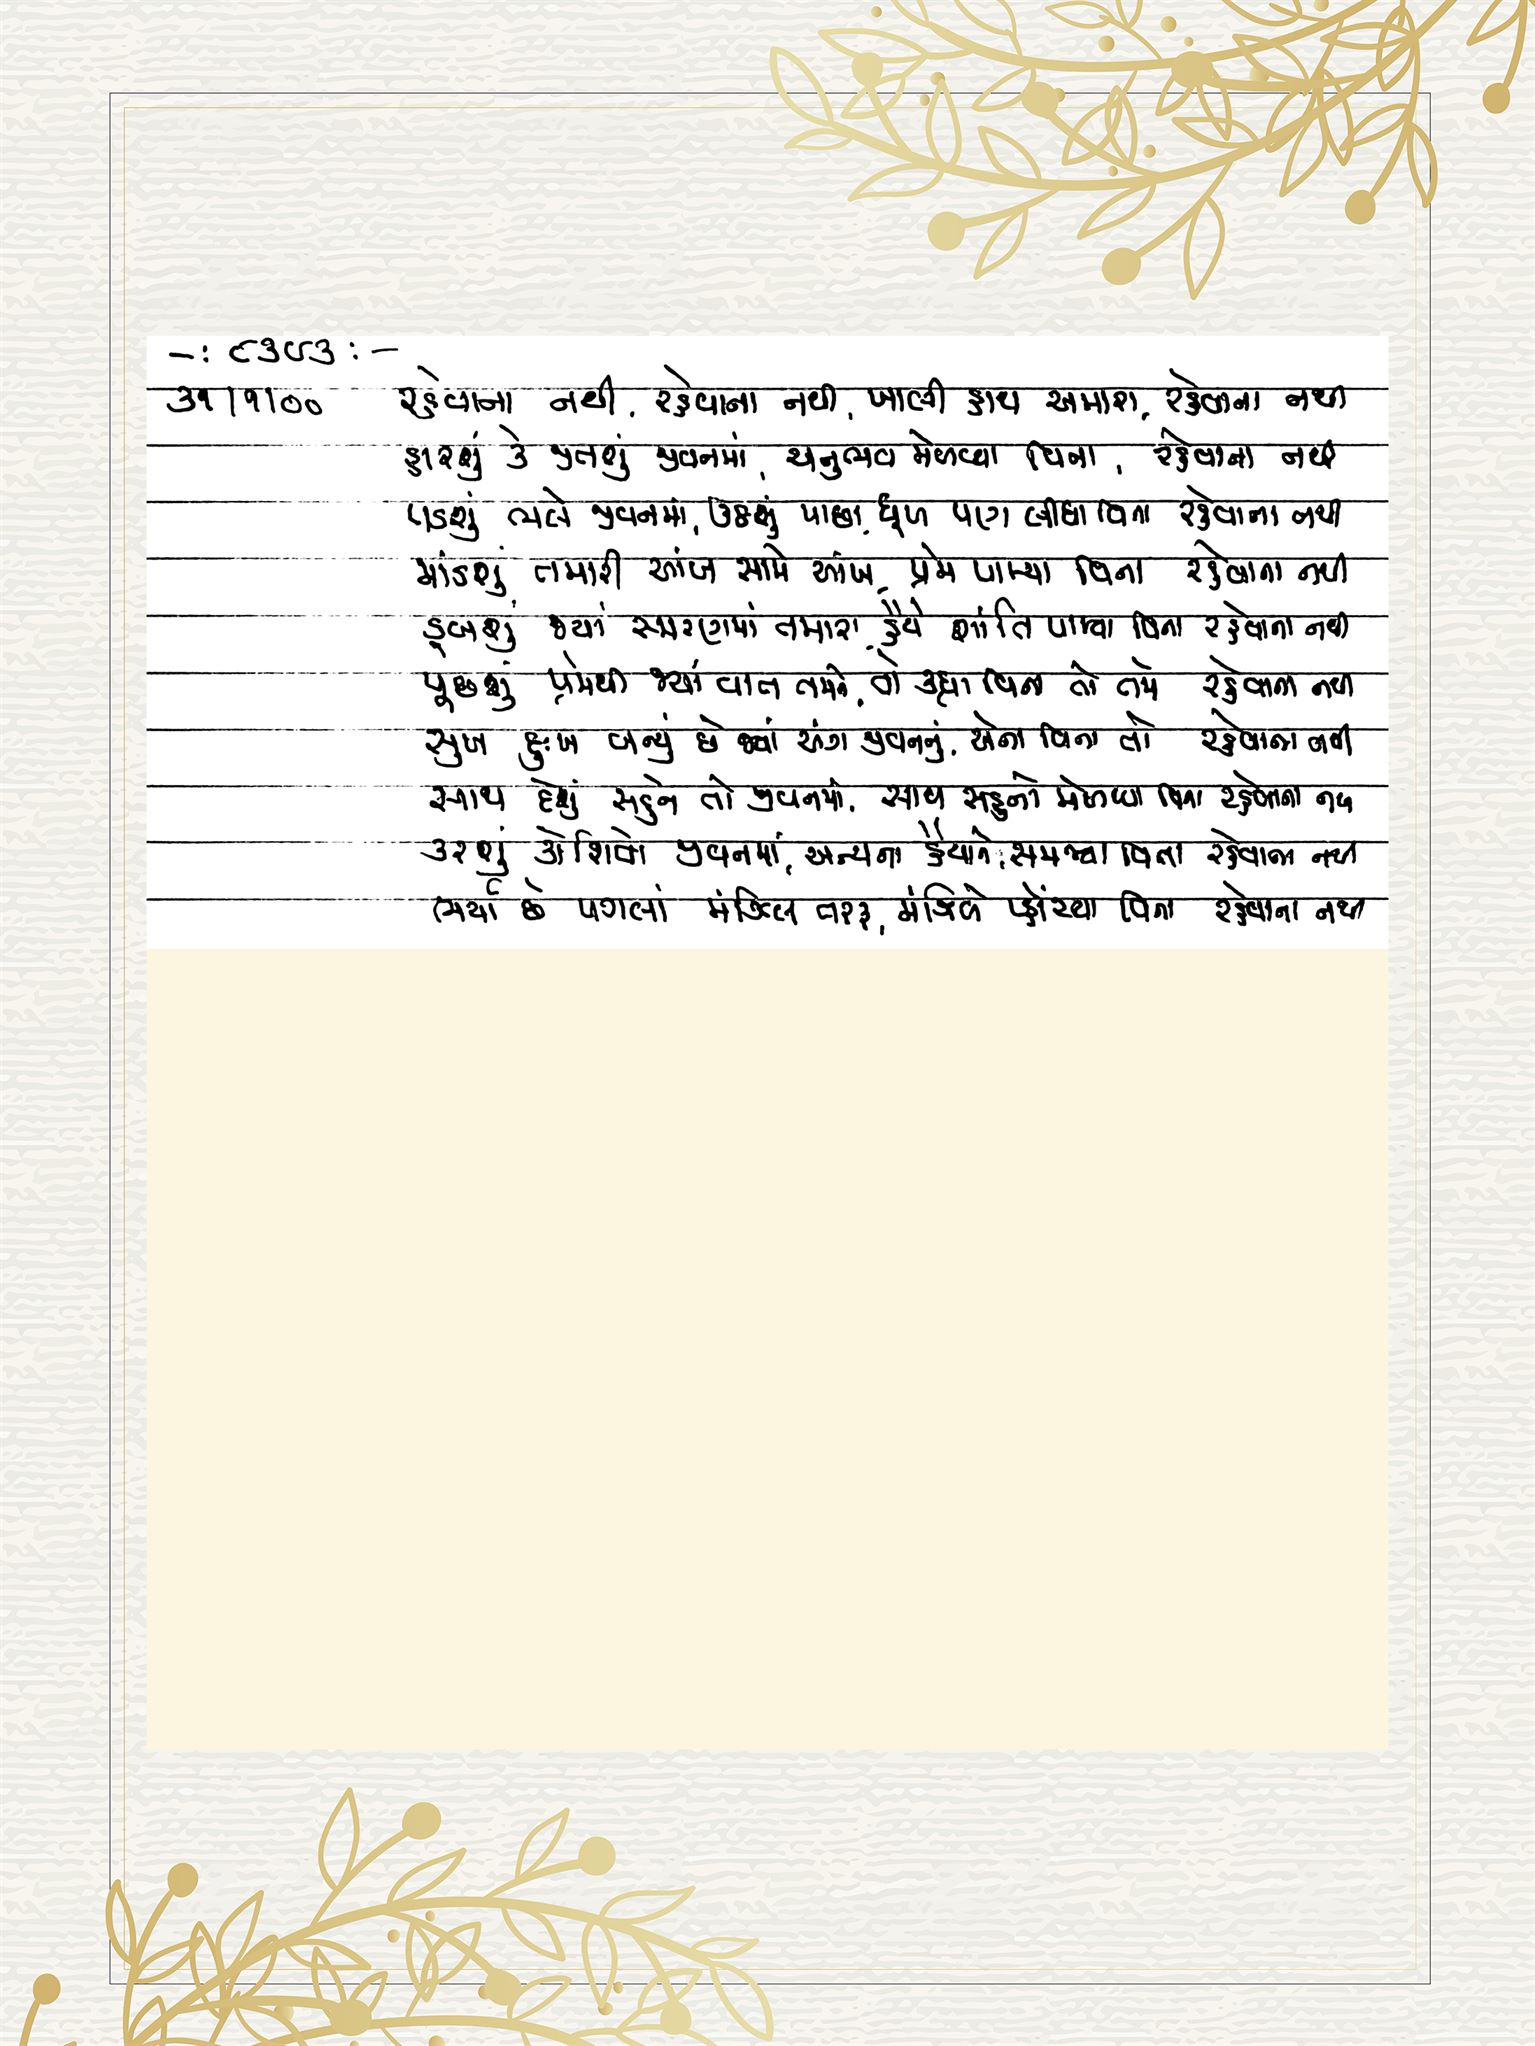 -: ૯૩૮૩ :-
૩૧/૧/૦૦ રહેવાના નથી, રહેવાના નથી, ખાલી હાથ અમારા, રહેવાના નથી
હારશું કે જીતશું જીવનમાં, અનુભવ મેળવ્યા વિના, રહેવાના નથી
પડશું ભલે જીવનમાં, ઉઠશું પાછા, ધૂળ પણ લીધા વિના રહેવાના નથી
માંડશું તમારી આંખ સામે આંખ, પ્રેમ પામ્યા વિના રહેવાના નથી
ડૂબશું જ્યાં સ્મરણમાં તમારા, હૈયે શાંતિ પામ્યા વિના રહેવાના નથી
પૂછશું પ્રેમથી જ્યાં વાત તમને, વો કહ્યા વિના તો તમે રહેવાના નથી
સુખ દુઃખ બન્યું છે જ્યાં અંગ જીવનનું, એના વિના તો રહેવાના નથી
સાથ દેશું સહુને તો જીવનમાં, સાથ સહુનો મેળવ્યા વિના રહેવાના નથી
કરશું કોશિશો જીવનમાં, અન્યના હૈયાને, સમજ્યા વિના રહેવાના નથી
ભર્યાં છે પગલાં મંઝિલ તરફ, મંઝિલે પહોંચ્યા વિના રહેવાના નથી